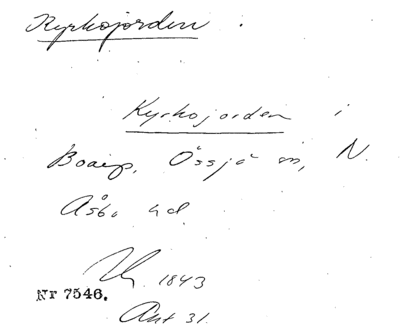 Kyrkojorden.
Kyrkojorden i
Boarp, Össjö sn, N.
Åsbo hd.
1843
Nr 7546.
Akt 31.